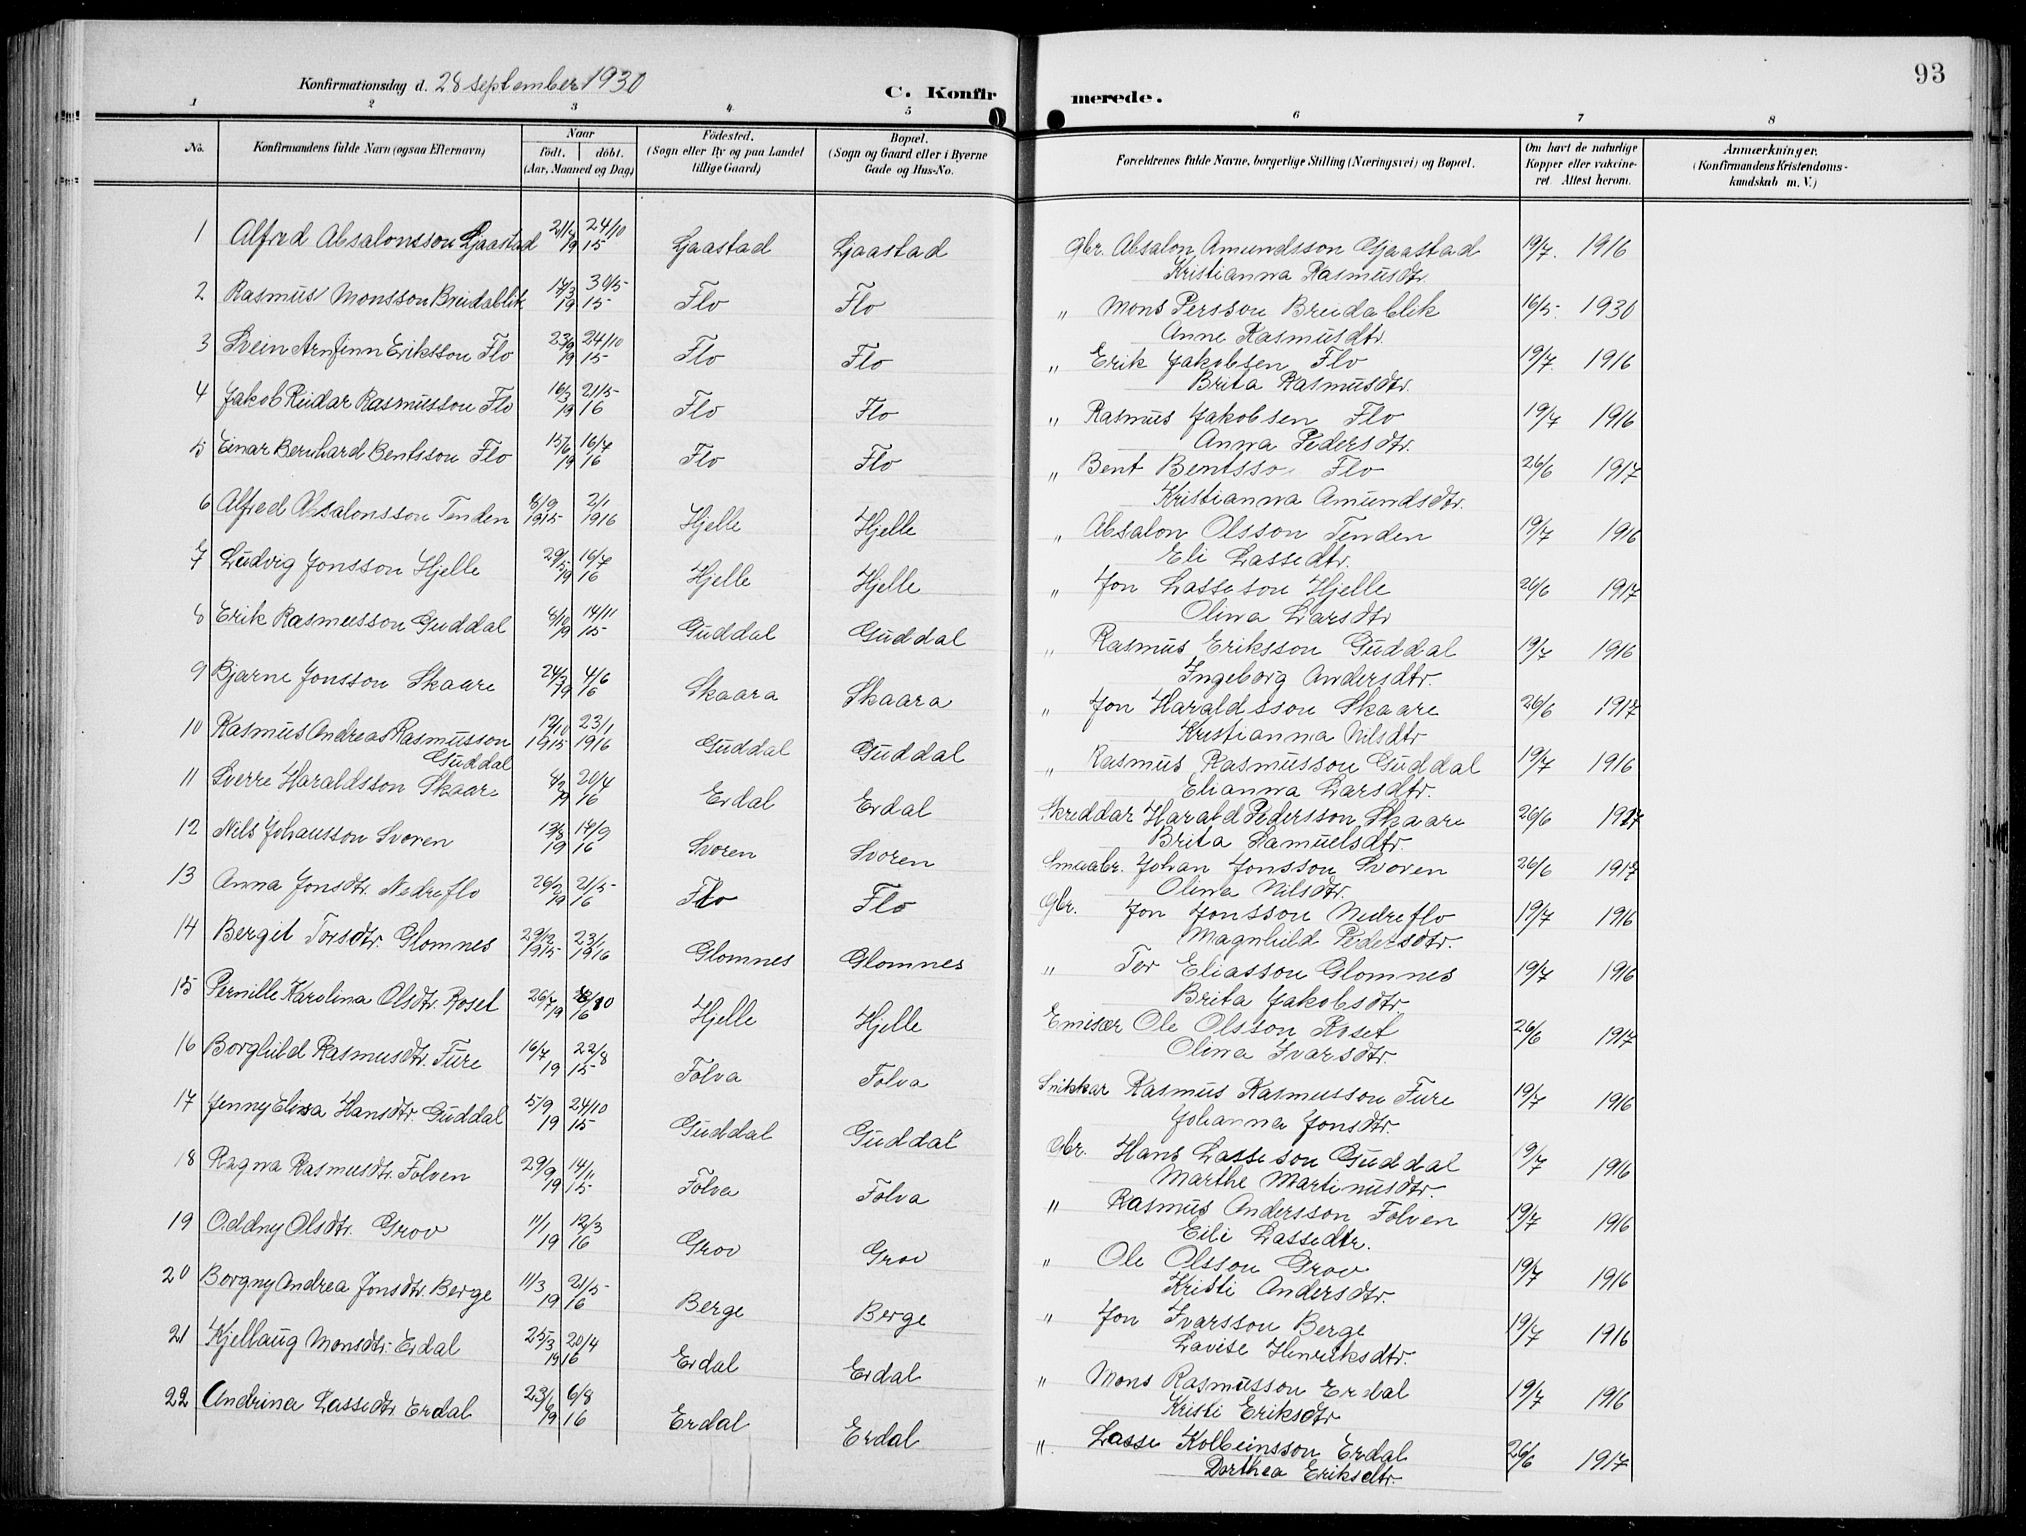 93
Konfirmationsdag d. 28 september 1930
C. Konfirmerede.
1 2 3 4 5 6 7 8
No.
Konfirmandens fulde Navn (ogsaa Efternavn)
Naar
født. døbt.
(Aar, Maaned og Dag)
Fødested.
(Sogn eller By og paa Landet tillige Gaard)
Bopæl.
(Sogn og Gaard eller i Byerne Gade og Hus-No.
Forældrenes fulde Navne, borgerlige Stilling (Næringsvei) og Bopæl.
Om havt de naturlige Kopper eller vakcineret. Attest herom.
Anmærkninger.
(Konfirmandens Kristendomskundskab m. V.)
1 Alfred Absalonsson Gjaastad 24/10 19 15 Gjaastad Gjaastad gbr. Absalon Amundsson Gjaastad 19/7. 1916
Kristianna Rasmusdtr.
2 Rasmus Monsson Breidablik 17/3 30/5 19 15 Flo Flo " Mons Persson Breidablik 16/5. 1930
Anne Rasmusdtr.
3 Svein Arnfinn Eriksson Flo 23/9 24/10 19 15 Flo Flo " Erik Jakobsen Flo 19/7. 1916
Brita Rasmusdtr.
4 Jakob Reidar Rasmusson Flo 16/3 21/5 19 16 Flo Flo " Rasmus Jakobsen Flo 19/7 1916
Anna Pedersdtr.
5 Einar Bernhard Bentsson Flo 15/6 16/7 19 16 Flo Flo " Bent Bentsson Flo 26/6 1917
Kristianna Amundsdtr.
6 Alfred Absalonsson Tenden 8/9 1915 2/1 1916 Hjelle Hjelle " Absalon Olsson Tenden 19/7 1916
Eli Lassedtr.
7 Ludvig Jonsson Hjelle 29/5 16/7 19 16 Hjelle Hjelle " Jon Lasseson Hjelle 26/6 1917
Olina Larsdtr
8 Erik Rasmusson Guddal 8/10 14/11 19 15 Guddal Guddal " Rasmus Eriksson Guddal 19/7 1916
Ingeborg Andersdtr.
9 Bjarne Jonsson Skaare 24/3 4/6 19 16 Skaara Skaara " Jon Haraldsson Skaare 26/6 1917
Kristianna Nilsdtr
10 Rasmus Andreas Rasmusson Guddal 12/10 1915 23/1 1916 Guddal Guddal " Rasmus Rasmusson Guddal 19/7 1916
Elianna Larsdtr.
11 Sverre Haraldsson Skaare 8/2 20/4 19 16 Erdal Erdal Skreddar Harald Pedersson Skaare 26/6 1917
Brita Samuelsdtr.
12 Nils Johansson Svoren 13/8 17/9 19 16 Svoren Svoren Smaabr. Johan Jonsson Svoren 26/6 1917
Olina Nilsdtr.
13 Anna Jonsdtr. Nedreflo 26/2 21/5 19 16 Flo Flo Gbr. Jon Jonsson Nedreflo 19/7 1916
Magnhild Pedersdtr.
14 Bergit Torsdtr. Glomnes 29/12 1915 23/1 1916 Glomnes Glomnes " Tor Eliasson Glomnes 19/7 1916
Brita Jakobsdtr.
15 Pernille Karolina Olsdtr. Roset 26/7 19 16 Hjelle Hjelle Emisær Ole Olsson Roset 26/6 1917
Olina Ivarsdtr.
16 Borghild Rasmusdtr. Fure 16/7 22/8 19 15 Folva Folva Snikkar Rasmus Rasmusson Fure 19/7 1916
Johanna Jonsdtr.
17 Jenny Elisa Hansdtr. Guddal 5/9 24/10 19 15 Guddal Guddal Gbr. Hans Lasseson Guddal 19/7 1916
Marthe Martinusdtr.
18 Ragna Rasmusdtr. Folven 29/9 14/11 19 15 Folva Folva " Rasmus Andersson Folven 19/7 1916
Eili Lassedtr.
19 Oddny Olsdtr. Grov 11/1 12/3 19 16 Grov Grov " Ole Olsson Grov 19/7 1916
Kristi Andersdtr.
20 Borgny Andrea Jonsdtr. Berge 11/3 21/5 19 16 Berge Berge " Jon Ivarsson Berge 19/7 1916
Lavise Henriksdtr.
21 Kjellaug Monsdtr. Erdal 25/3 20/4 19 16 Erdal Erdal " Mons Rasmusson Erdal 19/7 1916
Kristi Eriksdtr
22 Andrina Lassedtr Erdal 23/6 6/8 19 16 Erdal Erdal " Lasse Kolbeinsson Erdal 26/6 1917
Dorthea Eriksdtr.